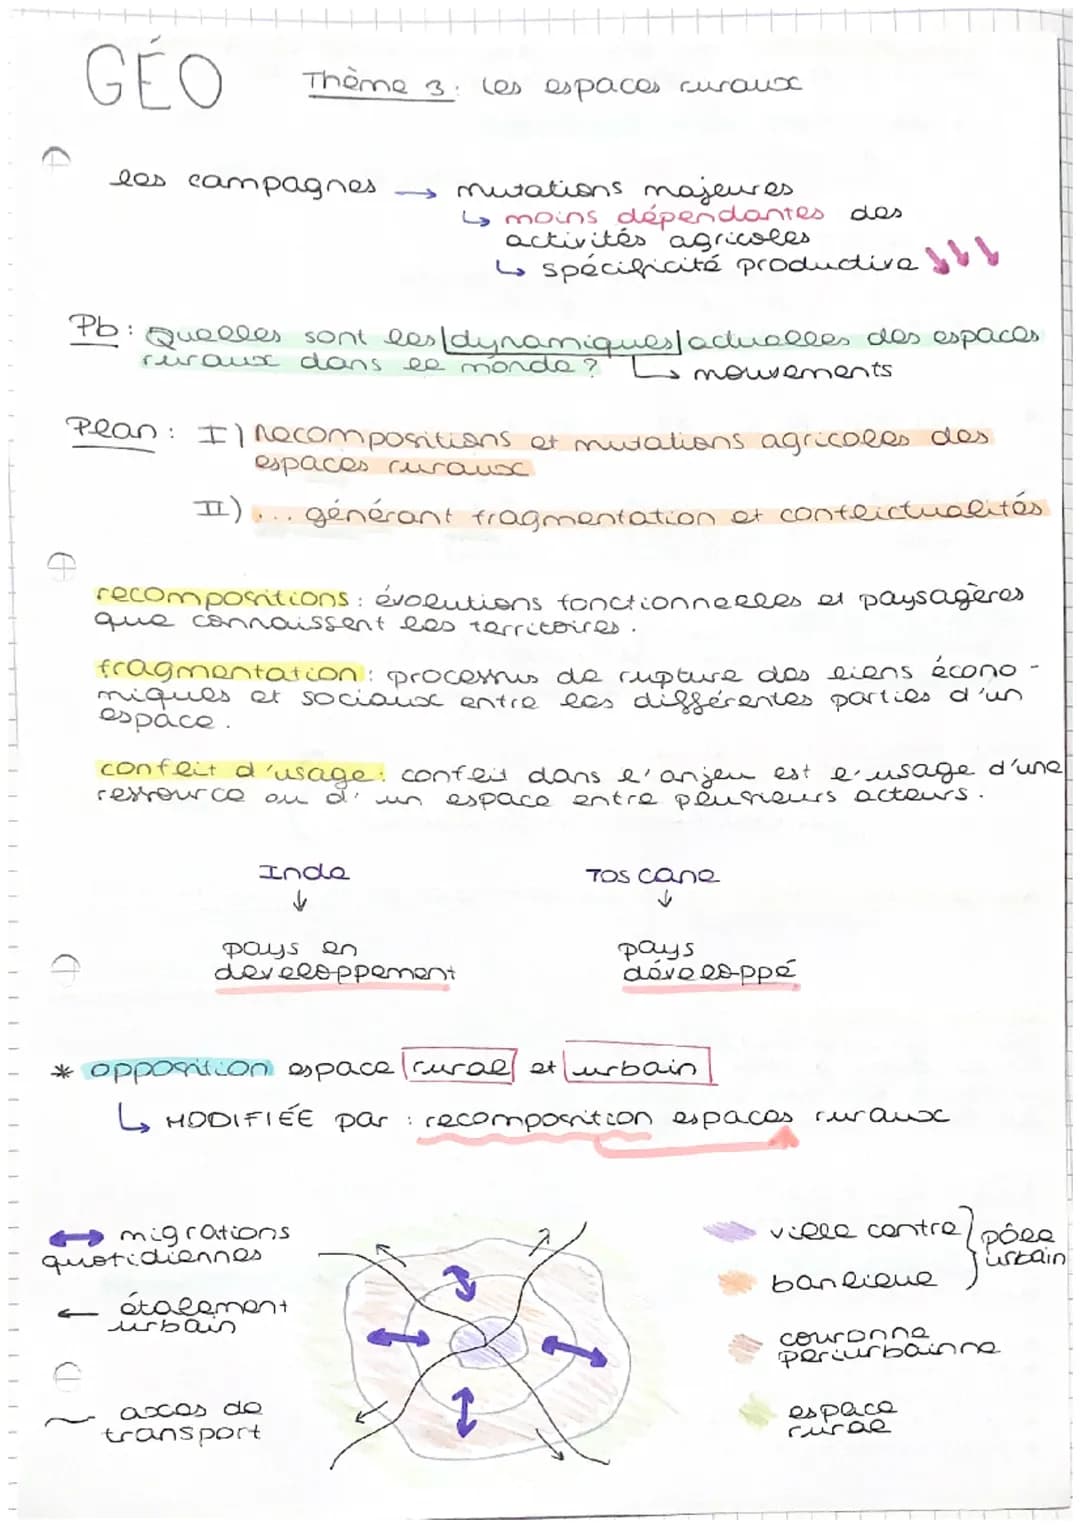 GÉO
Thème 3: les espaces ruraux
les campagnes → mutations majeures
↳ moins dépendantes des
activités agricoles
↳ spécificité productive ↓↓↓
Pb: Quelles sont les dynamiques actuelles des espaces
ruraux dans le monde ? ↳ mouvements
Plan: I) Recompositions et mutations agricoles des
espaces ruraux
II) ... générant fragmentation et conflictualités
recompositions: évolutions fonctionnelles et paysagères
que connaissent les territoires.
fragmentation: processus de rupture des liens écono-
miques et sociaux entre les différentes parties d'un
espace.
conflit d'usage: conflit dans l'anjeu est l'usage d'une
ressource ou d'un espace entre plusieurs acteurs.
Inde
↓
pays en
developpement
Toscane
↓
pays
développé
* opposition espace rural et urbain
↳ MODIFIÉE par : recomposition espaces ruraux
↔ migrations
quotidiennes
← étalement
urbain
axes de
transport
ville centre } pôle
urbain
banlieue
couronne
periurbainne
espace
rural